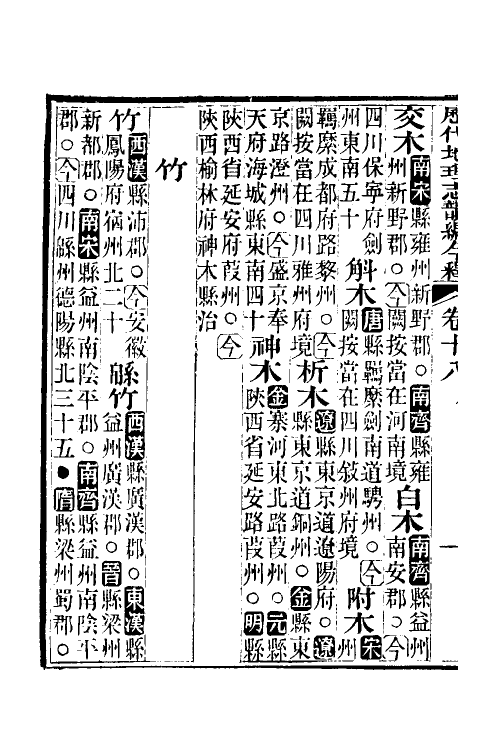 歷代地理志韻編今釋 卷十八 一
交木
南宋縣雍州新野郡○南齊縣雍
州新野郡○今闕按當在河南境
白木
南齊縣益州
南安郡○今
四川保寧府劍
州東南五十
斛木
唐縣羈縻劍南道騁州○今
闕按當在四川敘州府境
附木
宋
州
羈縻成都府路黎州○今
闕按當在四川雅州府境
析木
遼縣東京道遼陽府○遼
縣東京道銅州○金縣東
京路澄州○今盛京奉
天府海城縣東南四十
神木
金寨河東北路葭州○元縣
陝西省延安路葭州○明縣
陝西省延安府葭州○今
陝西榆林府神木縣治
竹
竹
西漢縣沛郡○今安徽
鳳陽府宿州北二十
緜竹
西漢縣廣漢郡○東漢縣
益州廣漢郡○晉縣梁州
新都郡○南宋縣益州南陰平郡○南齊縣益州南陰平
郡○今四川緜州德陽縣北三十五●隋縣梁州蜀郡○